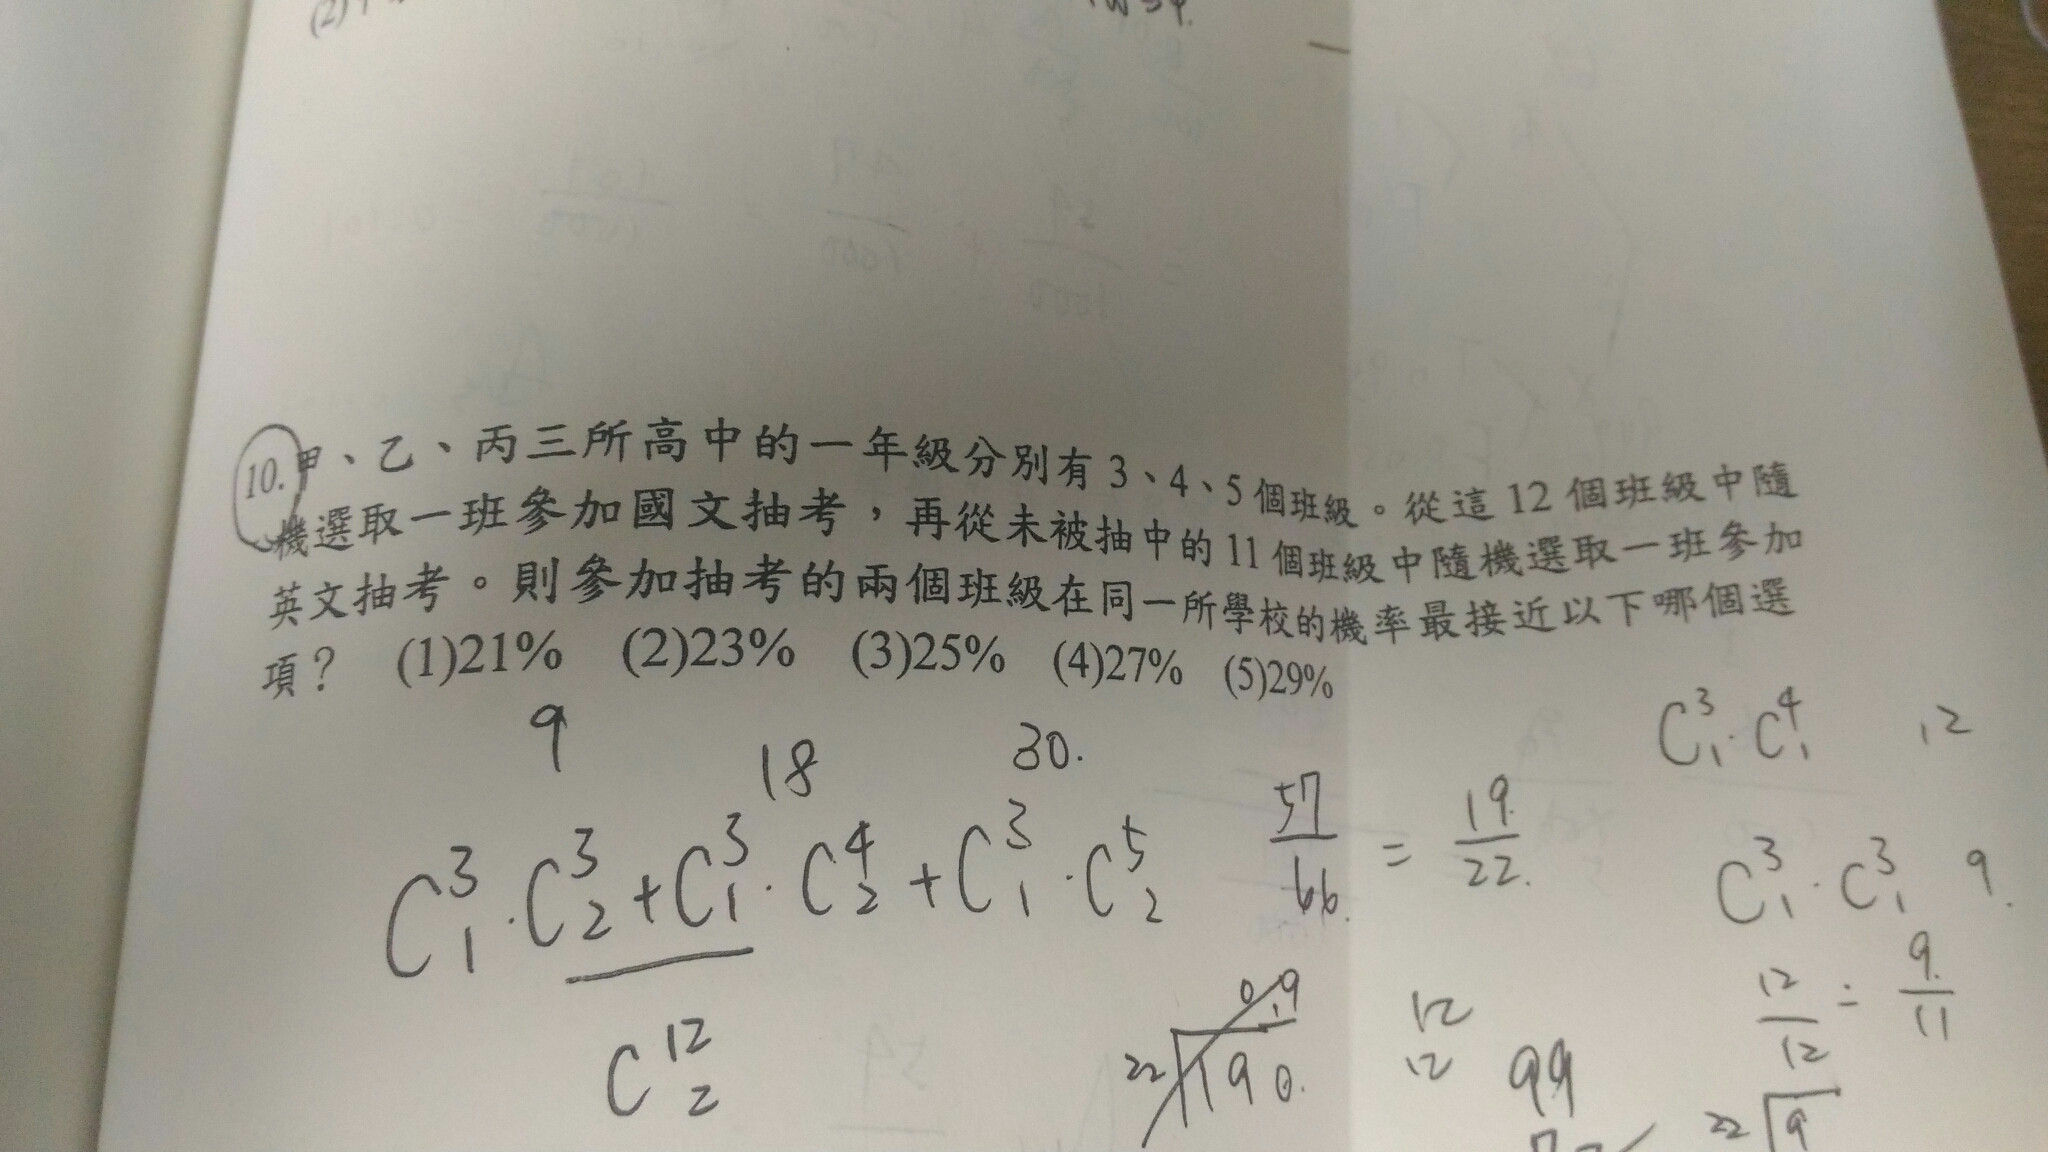 (2)
10.甲、乙、丙三所高中的一年級分別有3、4、5個班級。從這12個班級中隨
機選取一班參加國文抽考，再從未被抽中的11個班級中隨機選取一班參加
英文抽考。則參加抽考的兩個班級在同一所學校的機率最接近以下哪個選
項？ (1)21% (2)23% (3)25% (4)27% (5)29%
9 18 30.
C³₁·C³₂+C³₁·C⁴₂+C³₁·C⁵₂
C¹²₂
57/66. = 19./22.
C³₁·C⁴₁ 12
C³₁·C³₁ 9.
12/12 = 9./11
0.9
22 190.
12
12
99
22 9